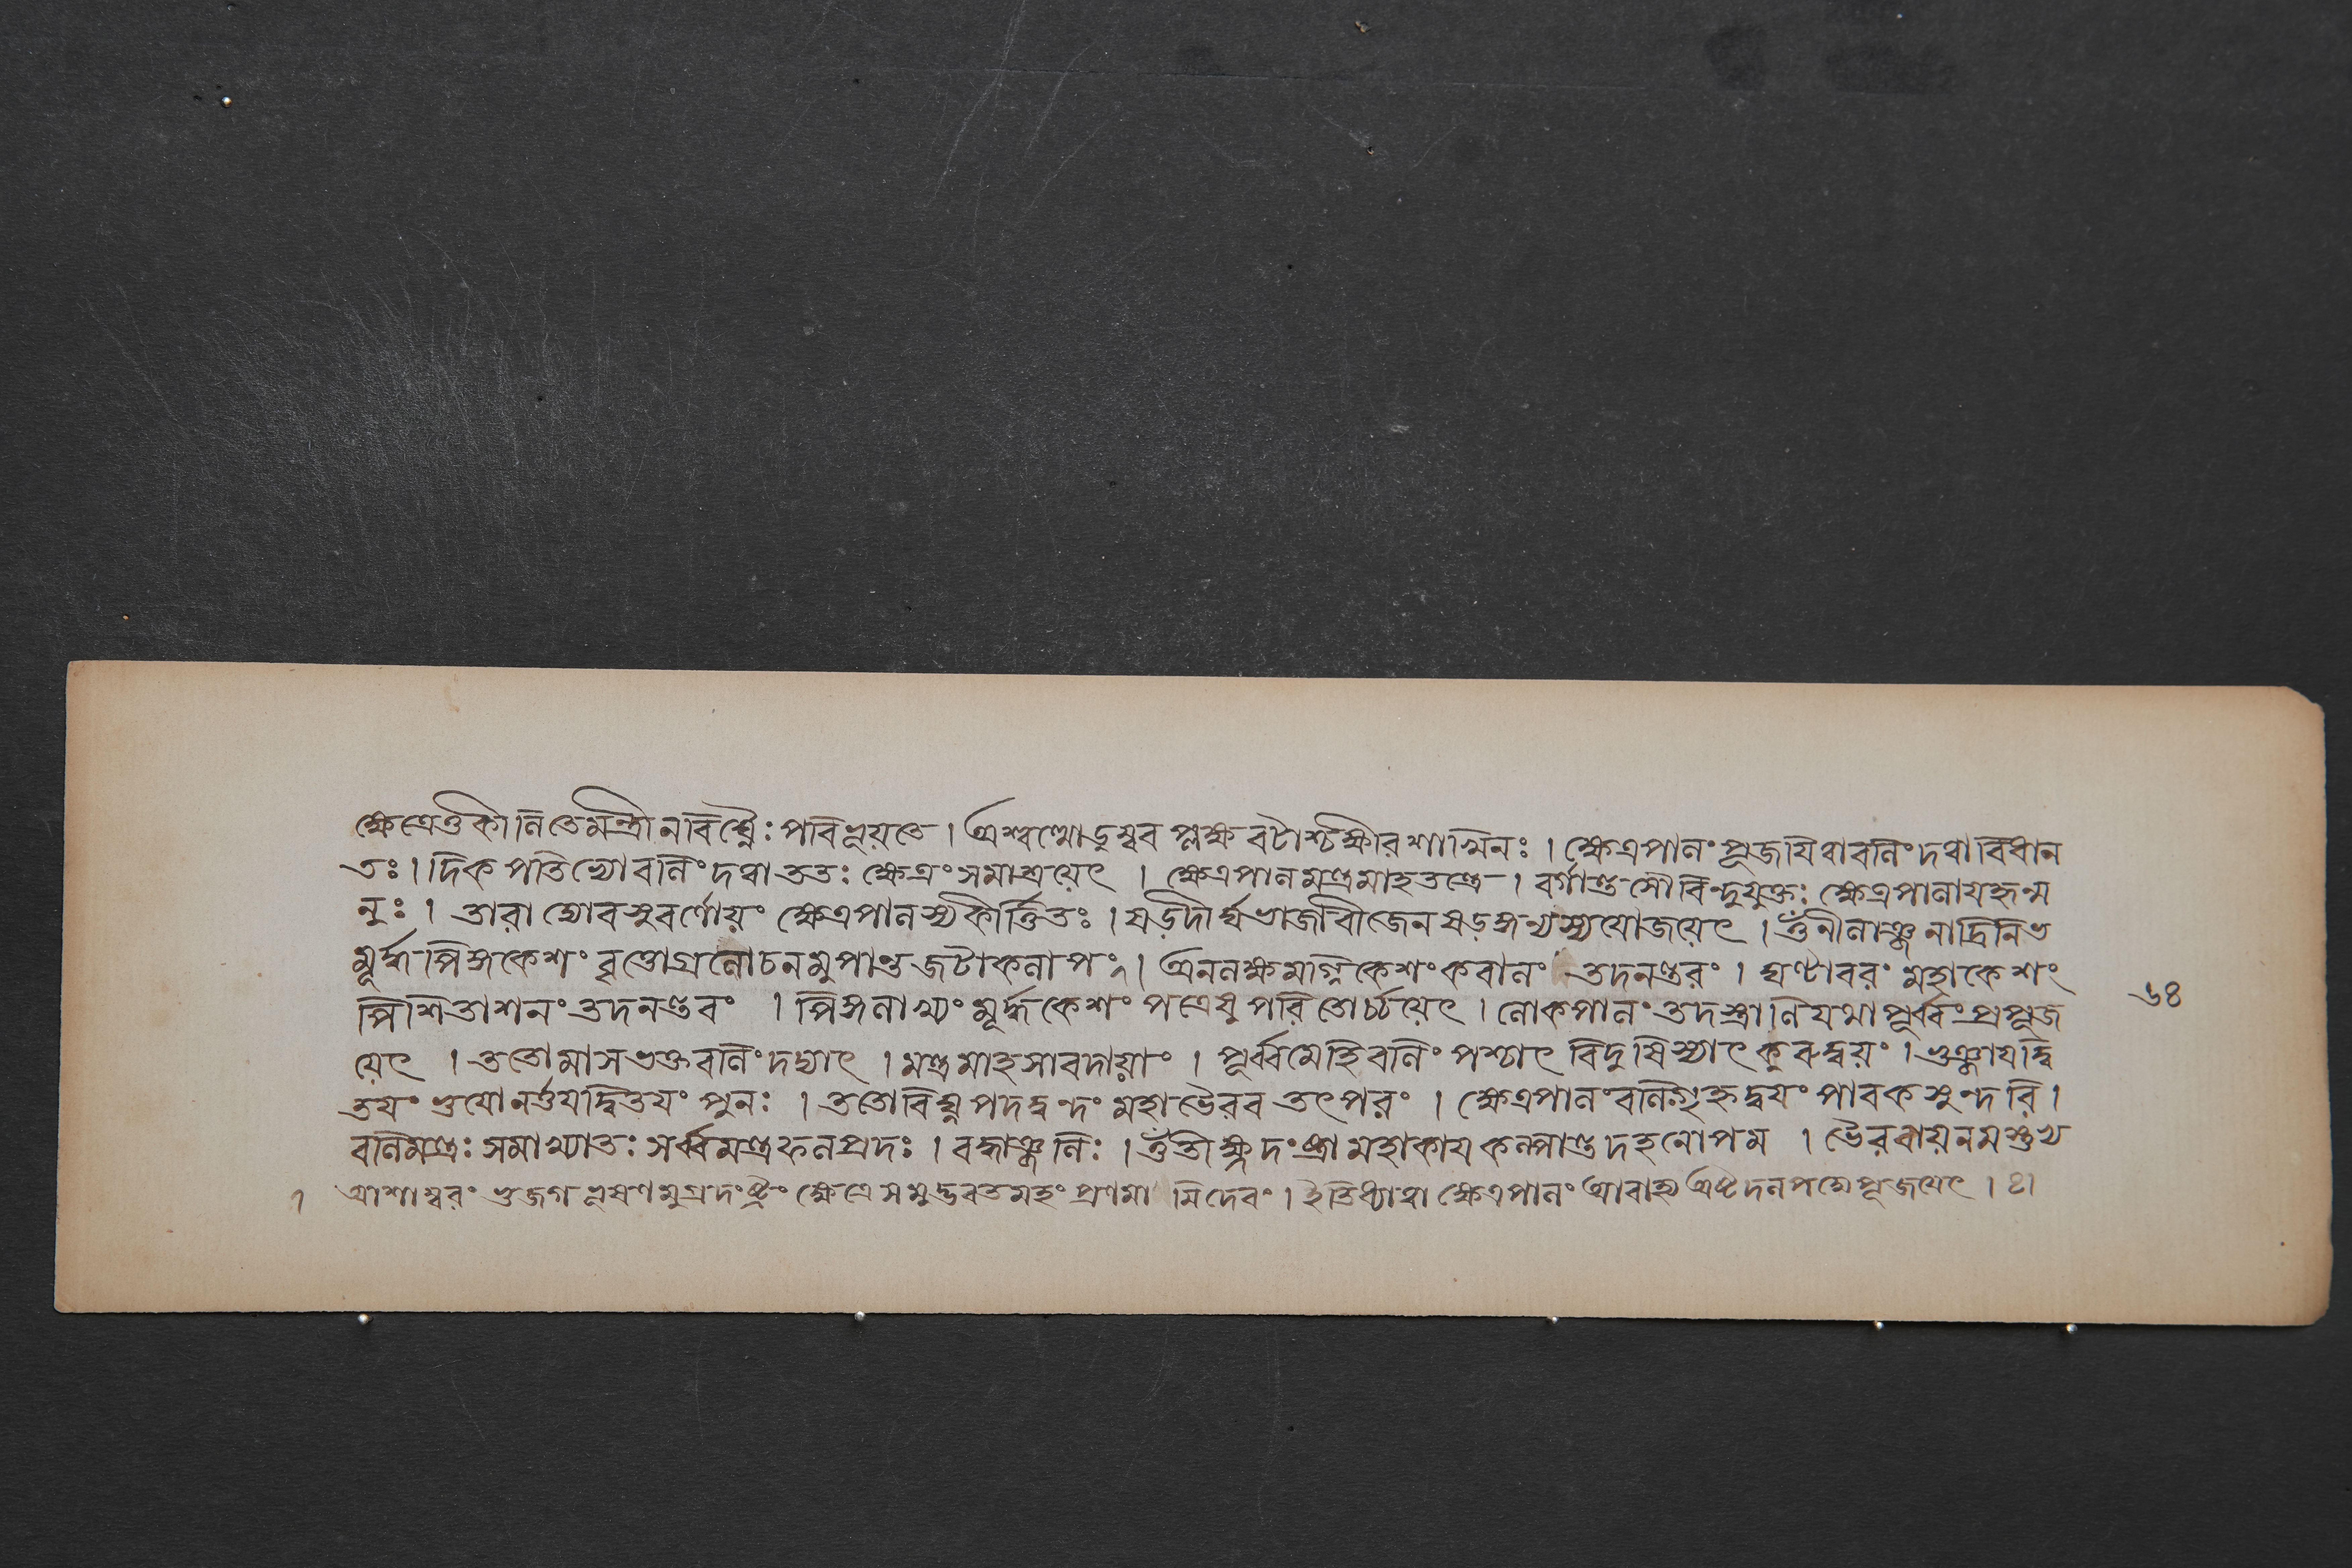 ক্ষেত্রেতুকীলিতেমন্ত্রীনবিঘ্নৈঃপরিভূয়তে । অশ্বত্থোডুম্বর প্লক্ষ বটাশ্চক্ষীরশাখিনঃ । ক্ষেত্রপালং পূজযিত্বাবলিং দত্বা বিধান
তঃ । দিক পতিভ্যোবলিং দত্বা ততঃ ক্ষেত্রং সমাশ্রয়েৎ । ক্ষেত্রপালমন্ত্রমাহতন্ত্রে । বর্গান্ত মৌবিন্দুযুক্তঃ ক্ষেত্রপালাযহৃন্ম
নুঃ । তারাদ্যোবসুবর্ণোয়ং ক্ষেত্রপালস্যকীর্ত্তিতঃ । ষড়্দীর্ঘভাজাবীজেন ষড়ঙ্গন্যস্যযোজয়েৎ । ওঁনীলাঞ্জনাদ্রিনিভ
মূর্দ্ধপিঙ্গকেশং বৃত্তোগ্রলোচনমুপাত্ত জটাকলাপং । অনলক্ষমগ্নিকেশংকরালং তদনন্তরং । ঘণ্টাবরং মহাকেশং
পিশিতাশনং তদনন্তরং । পিঙ্গলাখ্যং মূর্দ্ধকেশং পত্রেষুপরিতোর্চ্চয়েৎ । লোকপালং তদস্ত্রাণিযথাপূর্ব্বং প্রপূজ
য়েৎ । ততোমাসভক্তবলিং দদ্যাৎ । মন্ত্রমাহসারদায়াং । পূর্ব্বমেহিবলিং পশ্চাৎ বিদুষিস্যাৎ কুরুদ্বয়ং । ভুঞ্জাযদ্বি
তয়ং ভুযোনর্ত্তযদ্বিতয়ং পুনঃ । ততোবিঘ্নপদদ্বন্দং মহাভৈরব তৎপরং । ক্ষেত্রপালংবলিংগৃহ্নদ্বয়ং পাবকসুন্দরি ।
বলিমন্ত্রঃ সমাখ্যাতঃ সর্ব্বমন্ত্রফলপ্রদঃ । বদ্ধাঞ্জলিঃ । ওঁতীক্ষ্ণদংষ্ট্রামহাকায কল্পান্তদহনোপম । ভৈরবায়নমস্তুভ্য
১ আশাম্বরং ভুজগভূষণমুগ্রদংষ্ট্রং ক্ষেত্রেসমুদ্ভবতমহং প্রণমামিদেবং । ইতিধ্যাত্বাক্ষেত্রপালং আবাহ্য অষ্টদলপদ্মেপূজয়েৎ । ৪।
৬৪